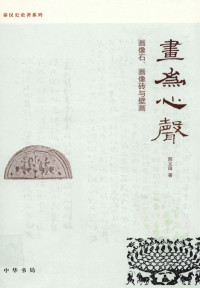 秦汉史论著系列
畫為心聲
画像石、画像砖与壁画
邢义田 著
中華書局